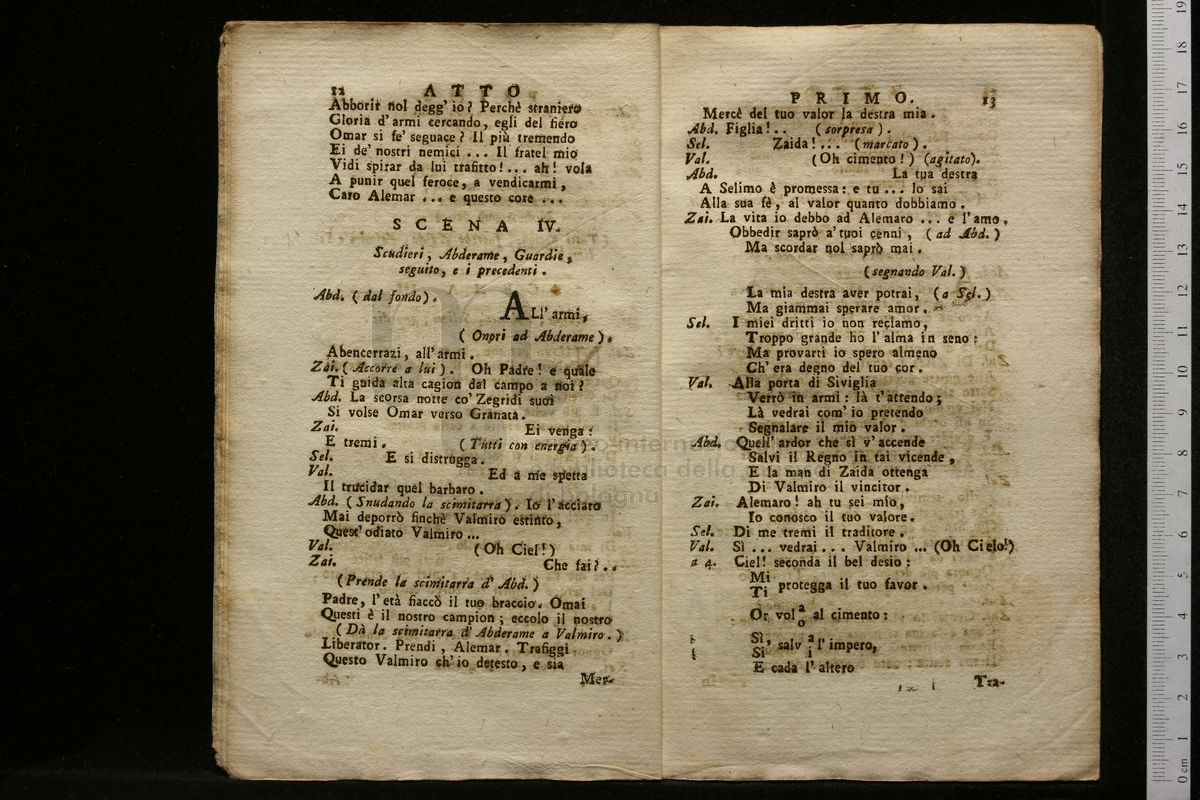 12 ATTO
Abborir nol degg' io? Perchè straniero
Gloria d'armi cercando, egli del fiero
Omar si fe' seguace? Il più tremendo
Ei de' nostri nemici ... Il fratel mio
Vidi spirar da lui trafitto!... ah! vola
A punir quel feroce, a vendicarmi,
Caro Alemar ... e questo core ...
SCENA IV.
Scudieri, Abderame, Guardie,
seguito, e i precedenti.
Abd. (dal fondo). ALl' armi,
(Onori ad Abderame).
Abencerrazi, all' armi.
Zai. (Accorre a lui). Oh Padre! e quale
Ti guida alta cagion dal campo a noi?
Abd. La scorsa notte co' Zegridi suoi
Si volse Omar verso Granata.
Zai. Ei venga:
E tremi. (Tutti con energia).
Sel. E si distrugga.
Val. Ed a me spetta
Il trucidar quel barbaro.
Abd. (Snudando la scimitarra). Io l'acciaro
Mai deporrò finchè Valmiro estinto,
Quest' odiato Valmiro ...
Val. (Oh Ciel!)
Zai. Che fai?..
(Prende la scimitarra d' Abd.)
Padre, l'età fiaccò il tuo braccio. Omai
Questi è il nostro campion; eccolo il nostro
(Dà la scimitarra d' Abderame a Valmiro.)
Liberator. Prendi, Alemar. Trafiggi
Questo Valmiro ch'io detesto, e sia
Mer-
PRIMO. 13
Mercè del tuo valor la destra mia.
Abd. Figlia!.. (sorpresa).
Sel. Zaida!... (marcato).
Val. (Oh cimento!) (agitato).
Abd. La tua destra
A Selimo è promessa: e tu ... lo sai
Alla sua fè, al valor quanto dobbiamo.
Zai. La vita io debbo ad Alemaro ... e l'amo,
Obbedir saprò a' tuoi cenni, (ad Abd.)
Ma scordar nol saprò mai.
(segnando Val.)
La mia destra aver potrai, (a Sel.)
Ma giammai sperare amor.
Sel. I miei dritti io non reclamo,
Troppo grande ho l'alma in seno:
Ma provarti io spero almeno
Ch' era degno del tuo cor.
Val. Alla porta di Siviglia
Verrò in armi: là t'attendo;
Là vedrai com' io pretendo
Segnalare il mio valor.
Abd. Quell' ardor che sì v' accende
Salvi il Regno in tai vicende,
E la man di Zaida ottenga
Di Valmiro il vincitor.
Zai. Alemaro! ah tu sei mio,
Io conosco il tuo valore.
Sel. Di me tremi il traditore.
Val. Sì ... vedrai... Valmiro ... (Oh Cielo!)
a 4. Ciel! seconda il bel desio:
Mi
Ti protegga il tuo favor.
Or vol a o al cimento:
Sì, salv a l' impero,
Si i
E cada l' altero
Tra-